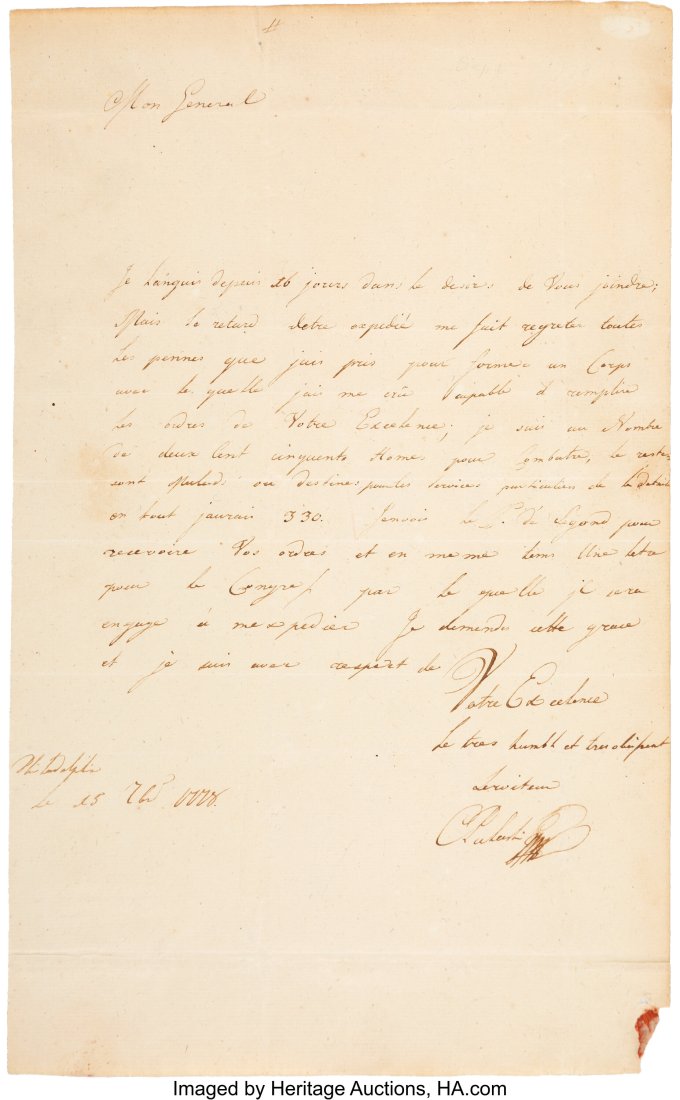 Mon General
Je languis depuis 16 jours dans le desirs de Vous joindre;
Mais le retard detre expedié me fait regreter toutes
Les pennes que jais pris pour former un Corps
avec le quelle jais me crü capable d remplire
les ordres de Votre Excelence; je suis au Nombre
de deux Cent cinquents Homes pour Combatre, le reste
sont Malads ou destines pour les services particulier de le detail
en tout jaurais 330. Jenvois le de Segond pour
recevoire Vos ordres et en meme tems Une letre
pour le Congress par le quelle il sera
engage a mexpedier Je demande cette grace
et je suis avec respect de
Votre Excelence
Le tres humbl et tres obeisent
Serviteur
CPulaski
Philadelphi
le 15 7br 1778.
Imaged by Heritage Auctions, HA.com